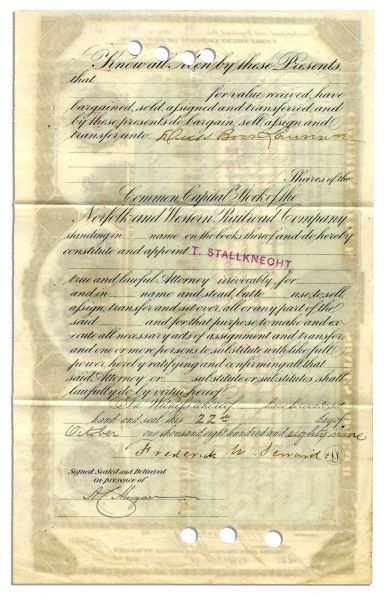 Know all Men by these Presents,
that
for value received, have
bargained, sold, assigned and transferred, and
by these presents do bargain, sell, assign and
transfer unto
Shares of the
Common Capital Stock of the
Norfolk and Western Railroad Company
standing in name on the books thereof and do hereby
constitute and appoint T. STALLKNECHT
true and lawful Attorney irrevocably for
and in name and stead, but to use, to sell,
assign, transfer and set over, all or any part of the
said and for that purpose to make and ex-
ecute all necessary acts of assignment and transfer,
and one or more persons to substitute with like full
power, hereby ratifying and confirming all that
said Attorney or substitute or substitutes shall
lawfully do by virtue hereof.
In Witness whereof, have hereunto set
hand and seal this 22d day of
October one thousand eight hundred and eighty nine
Frederick W. Seward
Signed Sealed and Delivered
in presence of